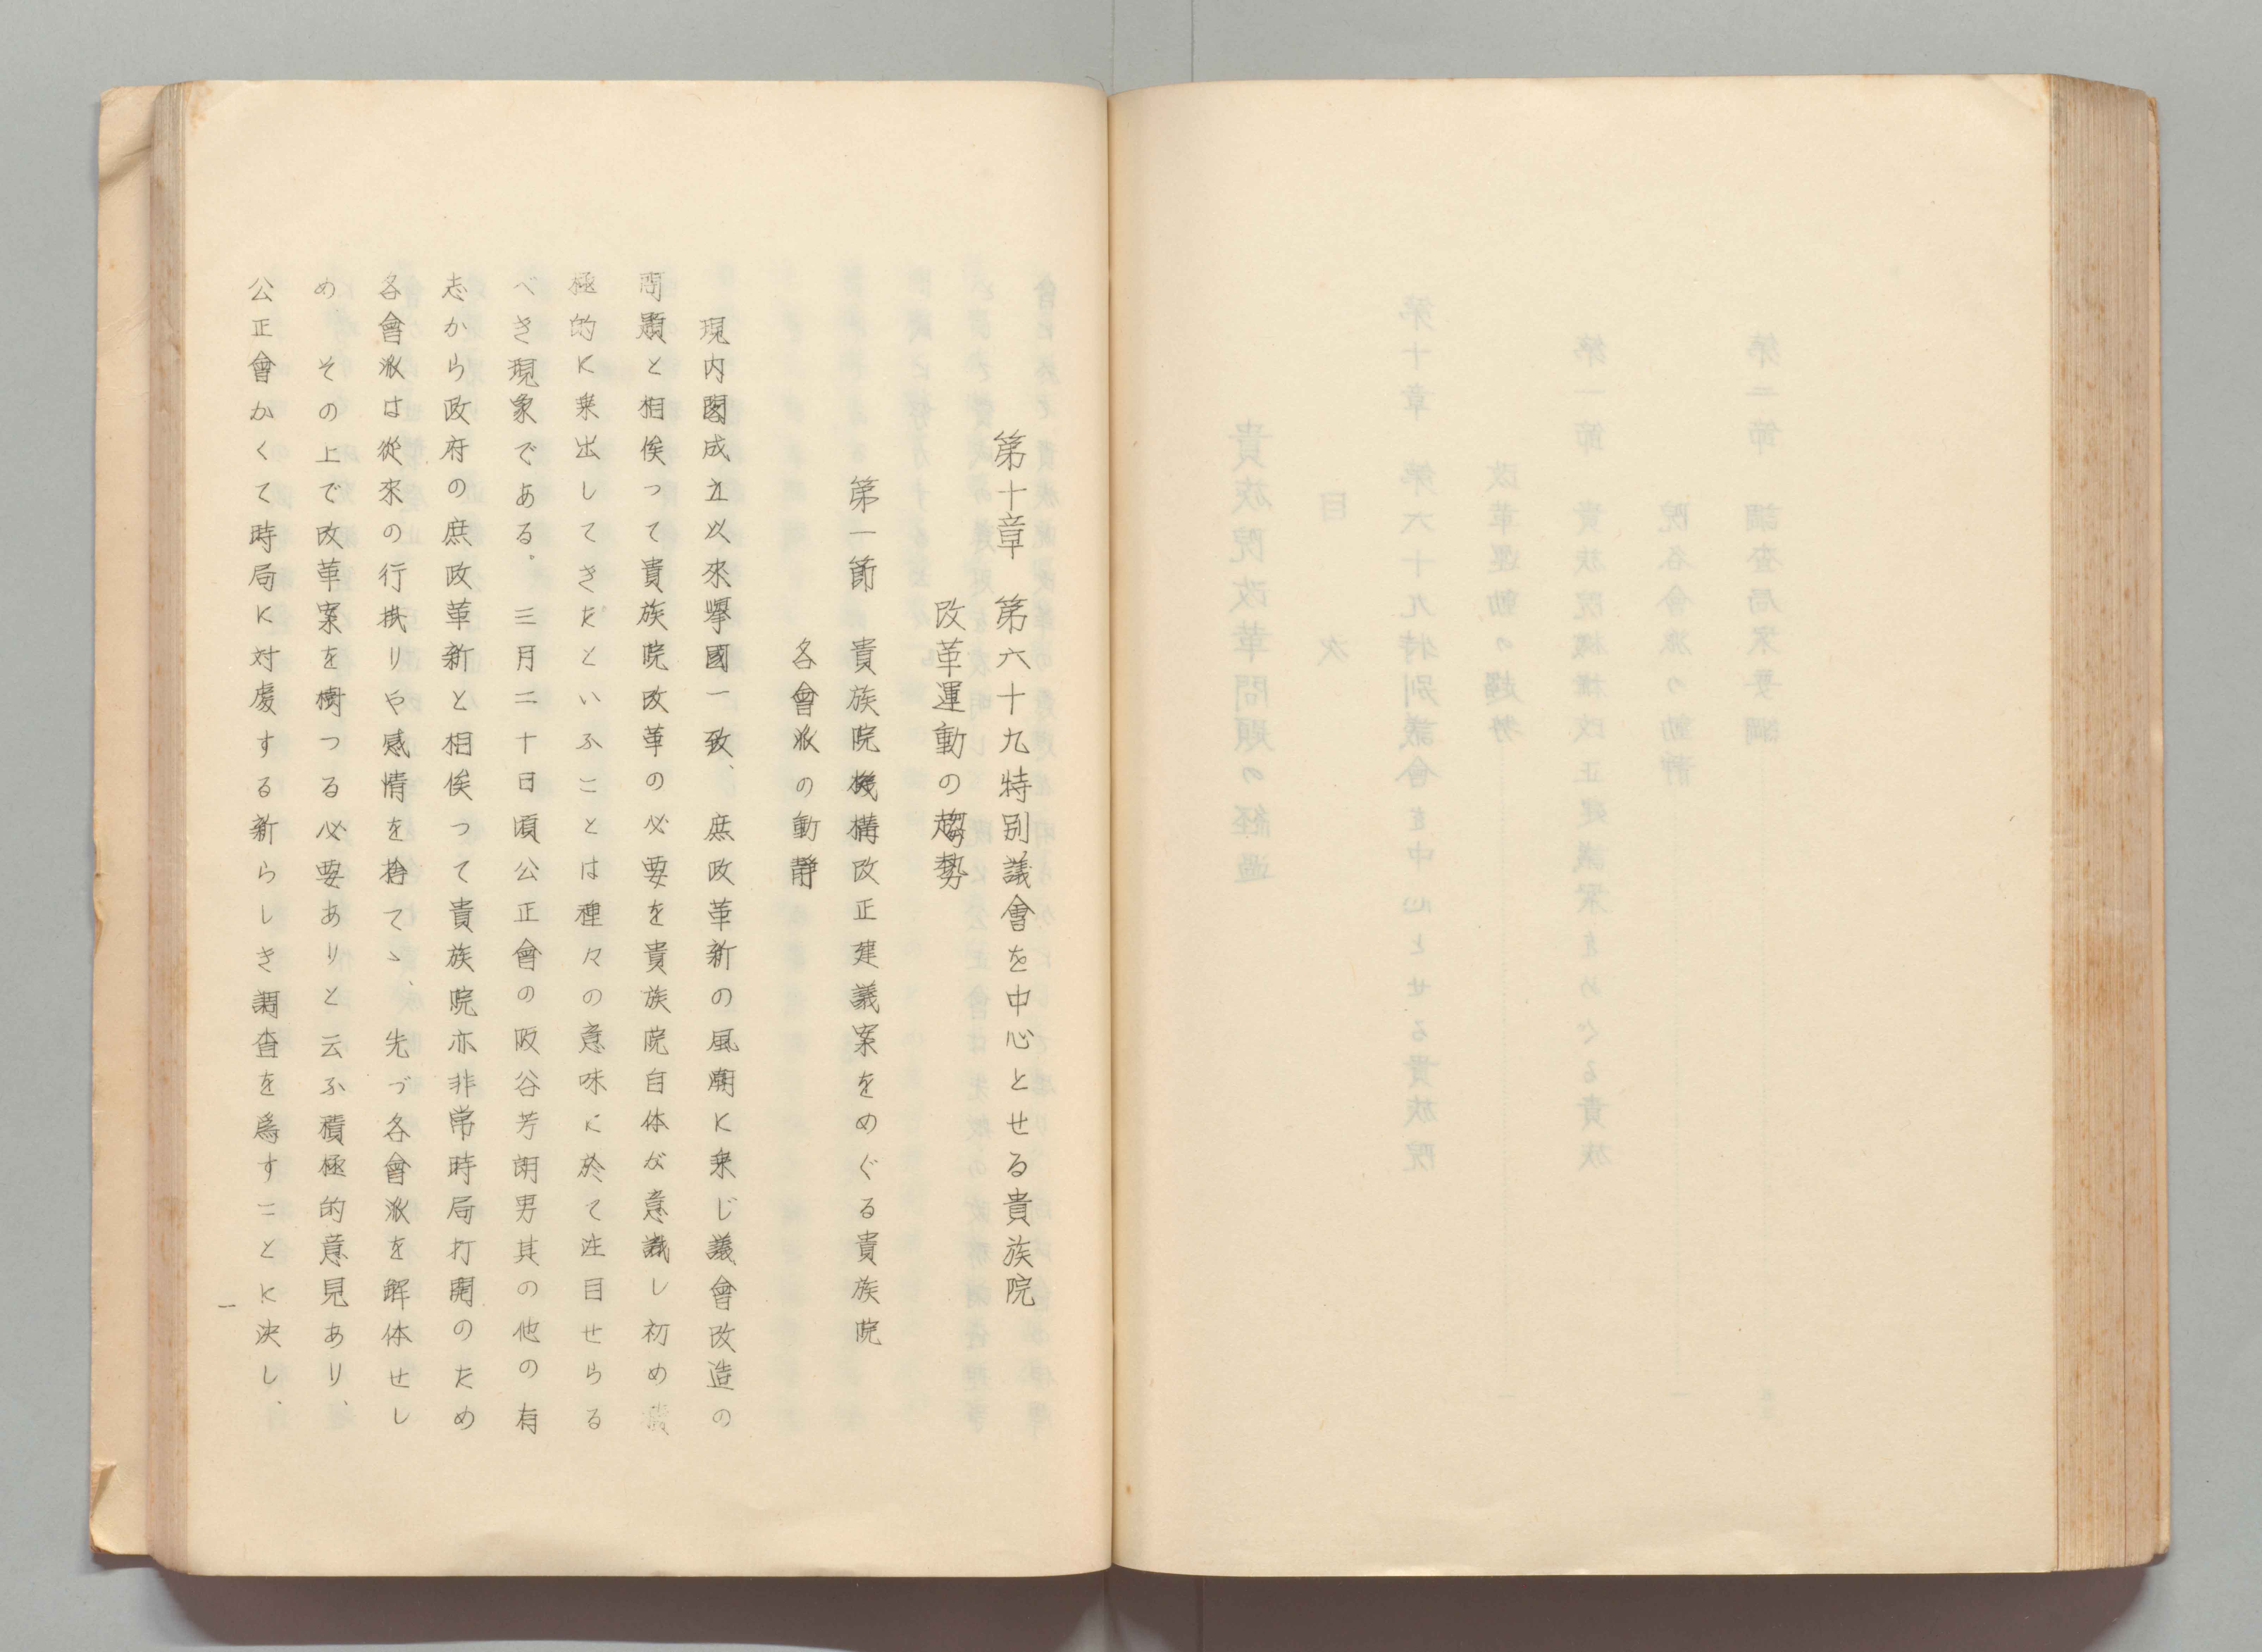 第十章　第六十九特別議會を中心とせる貴族院
改革運動の趨勢
第一節　貴族院機構改正建議案をめぐる貴族院
各會派の動靜
現内閣成立以來擧國一致、庶政革新の風潮に乗じ議會改造の
問題と相俟って貴族院改革の必要を貴族院自体が意識し初め積
極的に乗出してきたといふことは種々の意味に於て注目せらる
べき現象である。三月二十日頃公正會の阪谷芳朗男其の他の有
志から政府の庶政革新と相俟って貴族院亦非常時局打開のため
各會派は從來の行掛りや感情を捨てゝ、先づ各會派を解体せし
め、その上で改革案を樹つる必要ありと云ふ積極的意見あり、
公正會かくて時局に対処する新らしき調査を爲すことに決し、
一